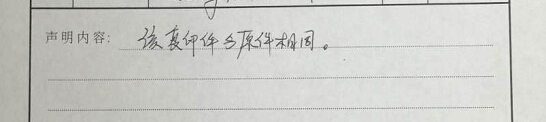 声明内容: 该复印件与原件相同。